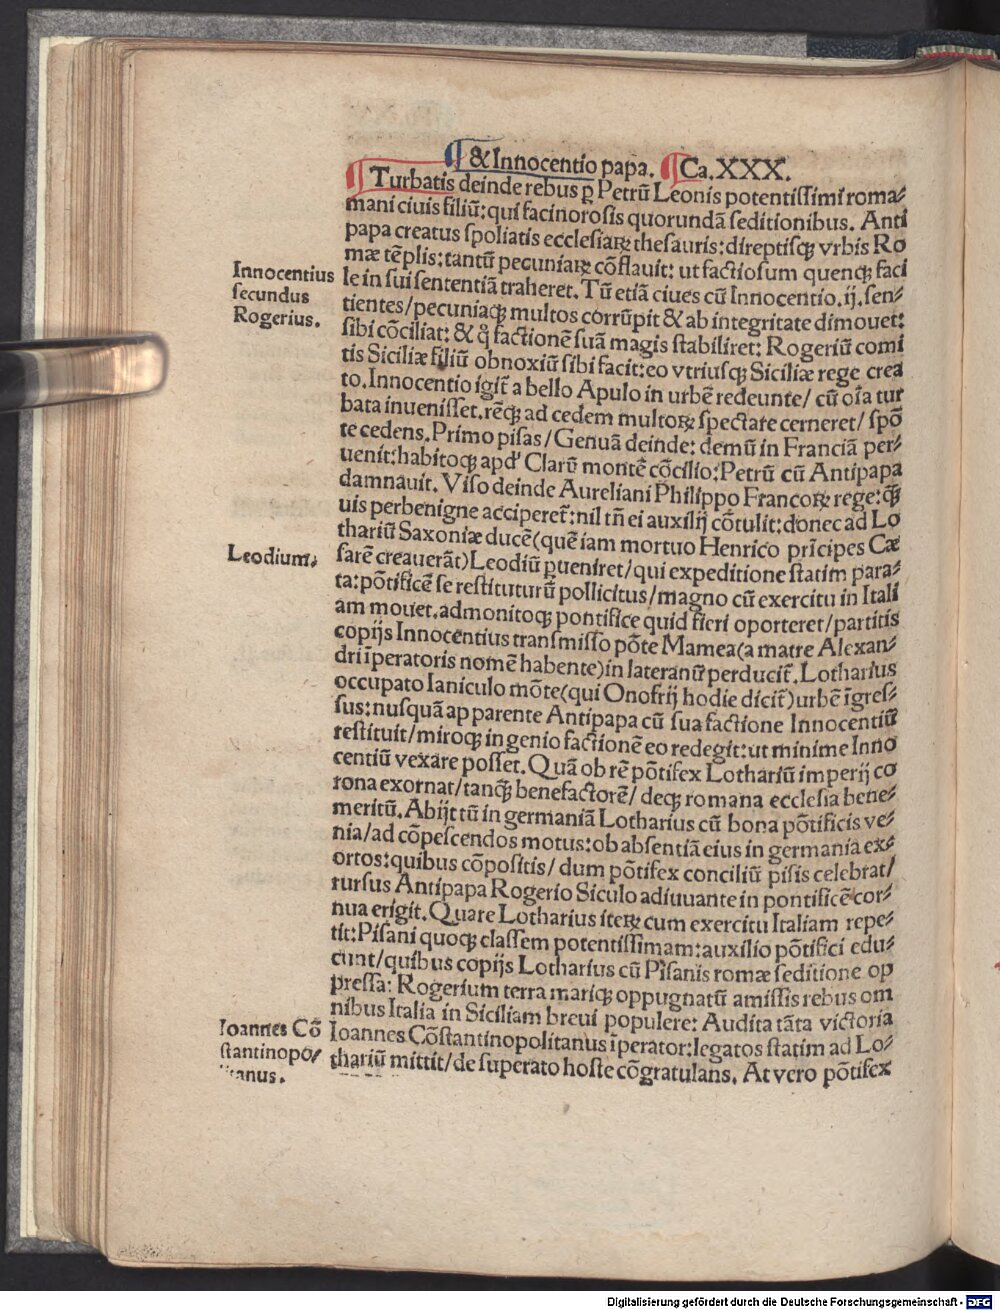 ¶ & Innocentio papa. ¶ Ca. XXX.
¶ Turbatis deinde rebus ꝑ Petrū Leonis potentiſſimi roma⸗
mani ciuis filiū: qui facinoroſis quorundā ſeditionibus. Anti
papa creatus ſpoliatis eccleſiaꝝ theſauris: direptiſqꝫ vrbis Ro
mæ tēplis: tantū pecuniaꝝ cōflauit: ut factioſum quenqꝫ faci
le in ſui ſententiā traheret. Tū etiā ciues cū Innocentio. ij. ſen⸗
tientes/ pecuniaqꝫ multos corrūpit & ab integritate dimouet:
ſibi cōciliat: & q̊ factionē ſuā magis ſtabiliret: Rogeriū comi
tis Siciliæ filiū obnoxiū ſibi facit: eo vtriuſqꝫ Siciliæ rege crea
to. Innocentio igit̄ a bello Apulo in urbē redeunte/ cū oīa tur
bata inueniſſet. rēqꝫ ad cedem multoꝝ ſpectate cerneret/ ſpō
te cedens. Primo piſas/ Genuā deinde: demū in Franciā per⸗
uenit: habitoqꝫ apd' Clarū montē cōcilio: Petrū cū Antipapa
damnauit. Viſo deinde Aureliani Philippo Francoꝝ rege: qꝫ̄
uis perbenigne acciperet̄: nil tñ ei auxilij cōtulit: donec ad Lo
thariū Saxoniæ ducē (quē iam mortuo Henrico prīcipes Cæ
ſarē creauerāt) Leodiū ꝑueniret/ qui expeditione ſtatim para⸗
ta: pōtificē ſe reſtituturū pollicitus/ magno cū exercitu in Itali
am mouet. admonitoqꝫ pontifice quid fieri oporteret/ partitis
copijs Innocentius tranſmiſſo pōte Mamea (a matre Alexan⸗
dri īperatoris nomē habente) in lateranū perducit̄. Lotharius
occupato Ianiculo mōte (qui Onofrij hodie dicit̄) urbē īgreſ⸗
ſus: nuſquā apparente Antipapa cū ſua factione Innocentiū
reſtituit/ miroqꝫ ingenio factionē eo redegit: ut minime Inno
centiū vexare poſſet. Quā ob rē pōtifex Lothariū imperij co
rona exornat/ tanqꝫ̄ benefactorē/ deqꝫ romana eccleſia bene⸗
meritū. Abijt tū in germaniā Lotharius cū bona pōtificis ve⸗
nia/ ad cōpeſcendos motus: ob abſentiā eius in germania ex⸗
ortos: quibus cōpoſitis/ dum pōtifex conciliū piſis celebrat/
rurſus Antipapa Rogerio Siculo adiuuante in pontificē cor⸗
nua erigit. Quare Lotharius iteꝝ cum exercitu Italiam repe⸗
tit: Piſani quoqꝫ claſſem potentiſſimam: auxilio pōtifici edu⸗
cunt/ quibus copijs Lotharius cū Piſanis romæ ſeditione op
preſſa: Rogerium terra mariqꝫ oppugnatū amiſſis rebus om
nibus Italia in Siciliam breui populere: Audita tāta victoria
Ioannes Cōſtantinopolitanus īperator: legatos ſtatim ad Lo⸗
thariū mittit/ de ſuperato hoſte cōgratulans. At vero pōtifex
Innocentius
ſecundus
Rogerius.
Leodium.
Ioannes Cō
ſtantinopo⸗
litanus.
Digitalisierung gefördert durch die Deutsche Forschungsgemeinschaft - DFG